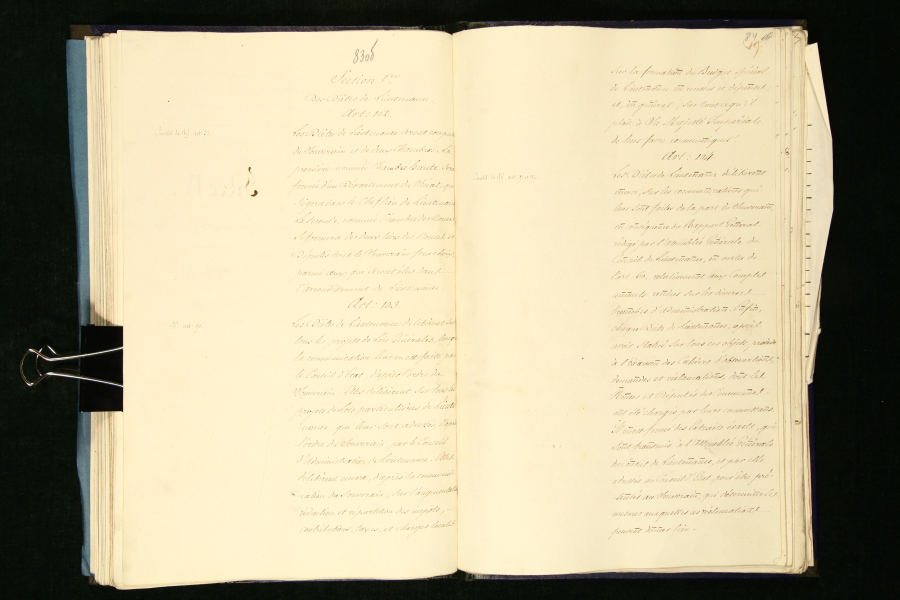 830b
Section 1re
Des Diètes de Lieutenance
Art: 102.
Les Diètes de Lieutenance seront
du Souverain et de deux Chambres. La
première nommée Chambre haute sera
formée d'un Département du Sénat, qui
siégera dans le Chef lieu de Lieutenance
La seconde, nommée Chambre des Nonces
se formera des deux tiers des Nonces et
Députés dont le Souverain fera choix
parmi ceux qui seront élus dans
l'arrondissement de Lieutenance
Art: 103.
Les Diètes de Lieutenance délibèrent sur
tous les projets de Lois Générales,
la communication leur en est faite par
le Conseil d'État, d'après l'ordre du
Souverain. Elles délibèrent sur tous les
projets de Lois particulières de Lieute
nance, qui leur sont adressés, d'après
l'ordre du Souverain par le Conseil
d'Administration de Lieutenance. Elles
délibèrent encore, d'après la communi
cation du Souverain, sur l'augmentation
réduction et répartition des impôts,
contributions, taxes, et charges locales
sur la formation du Budget spécial
de Lieutenance en recettes et dépenses,
et, en général, sur tout ce qu'il
plaît à Sa Majesté Impériale
de leur faire communiquer.
Art: 104.
Les Diètes de Lieutenance délibèrent
encore, sur les communications qui
leur sont faites de la part du Souverain,
en conséquence du Rapport Général
rédigé par l'assemblée Générale du
Conseil de Lieutenance, en vertu de
l'art. relativement aux Comptes
annuels rendus sur les diverses
branches d'Administration. Enfin,
chaque Diète de Lieutenance, après
avoir statué sur tous ces objets, procède
à l'Examen des Cahiers d'observations,
demandes et réclamations, dont les
Nonces et Députés des Communes
ont été chargés par leurs commettans.
Il en est formé des Extraits exacts, qui
sont transmis à l'Assemblée Générale
du Conseil de Lieutenance, et par elle
adressés au Conseil d'État, pour être pré-
sentés au Souverain, qui détermine les
mesures auxquelles ces réclamations
peuvent donner lieu.